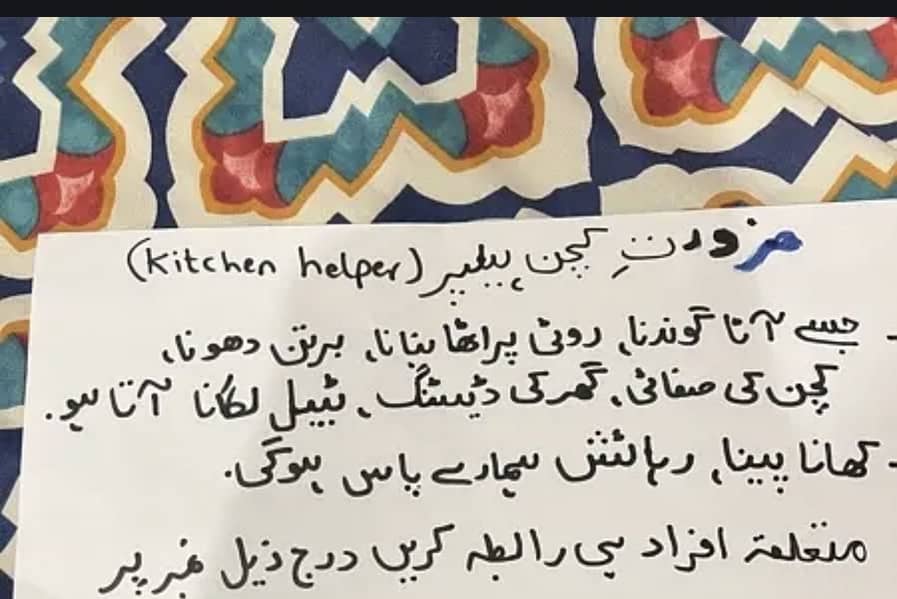 ضرورتِ کچن ہیلپر (kitchen helper)
- جسے آٹا گوندنا، روٹی پراٹھا بنانا، برتن دھونا،
کچن کی صفائی، گھر کی ڈسٹنگ، ٹیبل لگانا آتا ہو۔
- کھانا پینا، رہائش ہمارے پاس ہوگی۔
متعلقہ افراد ہی رابطہ کریں درج ذیل نمبر پر